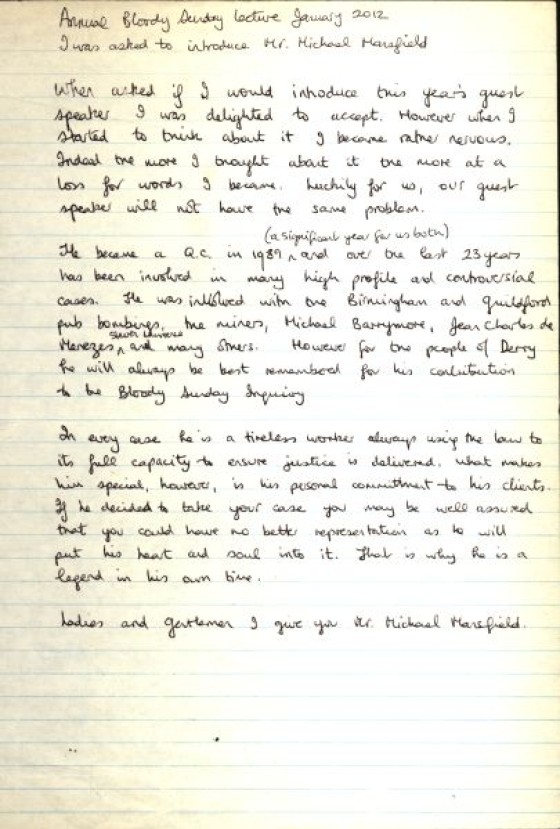 Annual Bloody Sunday Lecture January 2012
I was asked to introduce Mr. Michael Mansfield
When asked if I would introduce this year's guest
speaker I was delighted to accept. However when I
started to think about it I became rather nervous.
Indeed the more I thought about it the more at a
loss for words I became. Luckily for us, our guest
speaker will not have the same problem.
(a significant year for us both)
He became a Q.C. in 1989 ^ and over the last 23 years
has been involved in many high profile and controversial
cases. He was involved with the Birmingham and Guildford
pub bombings, the miners, Michael Barrymore, Jean Charles de
Menezes, ^ and many others. However for the people of Derry
he will always be best remembered for his contribution
to the Bloody Sunday Inquiry
In every case he is a tireless worker always using the law to
its full capacity to ensure justice is delivered. What makes
him special, however, is his personal commitment to his clients.
If he decided to take your case you may be well assured
that you could have no better representation as he will
put his heart and soul into it. That is why he is a
legend in his own time.
Ladies and Gentlemen I give you Mr. Michael Mansfield.